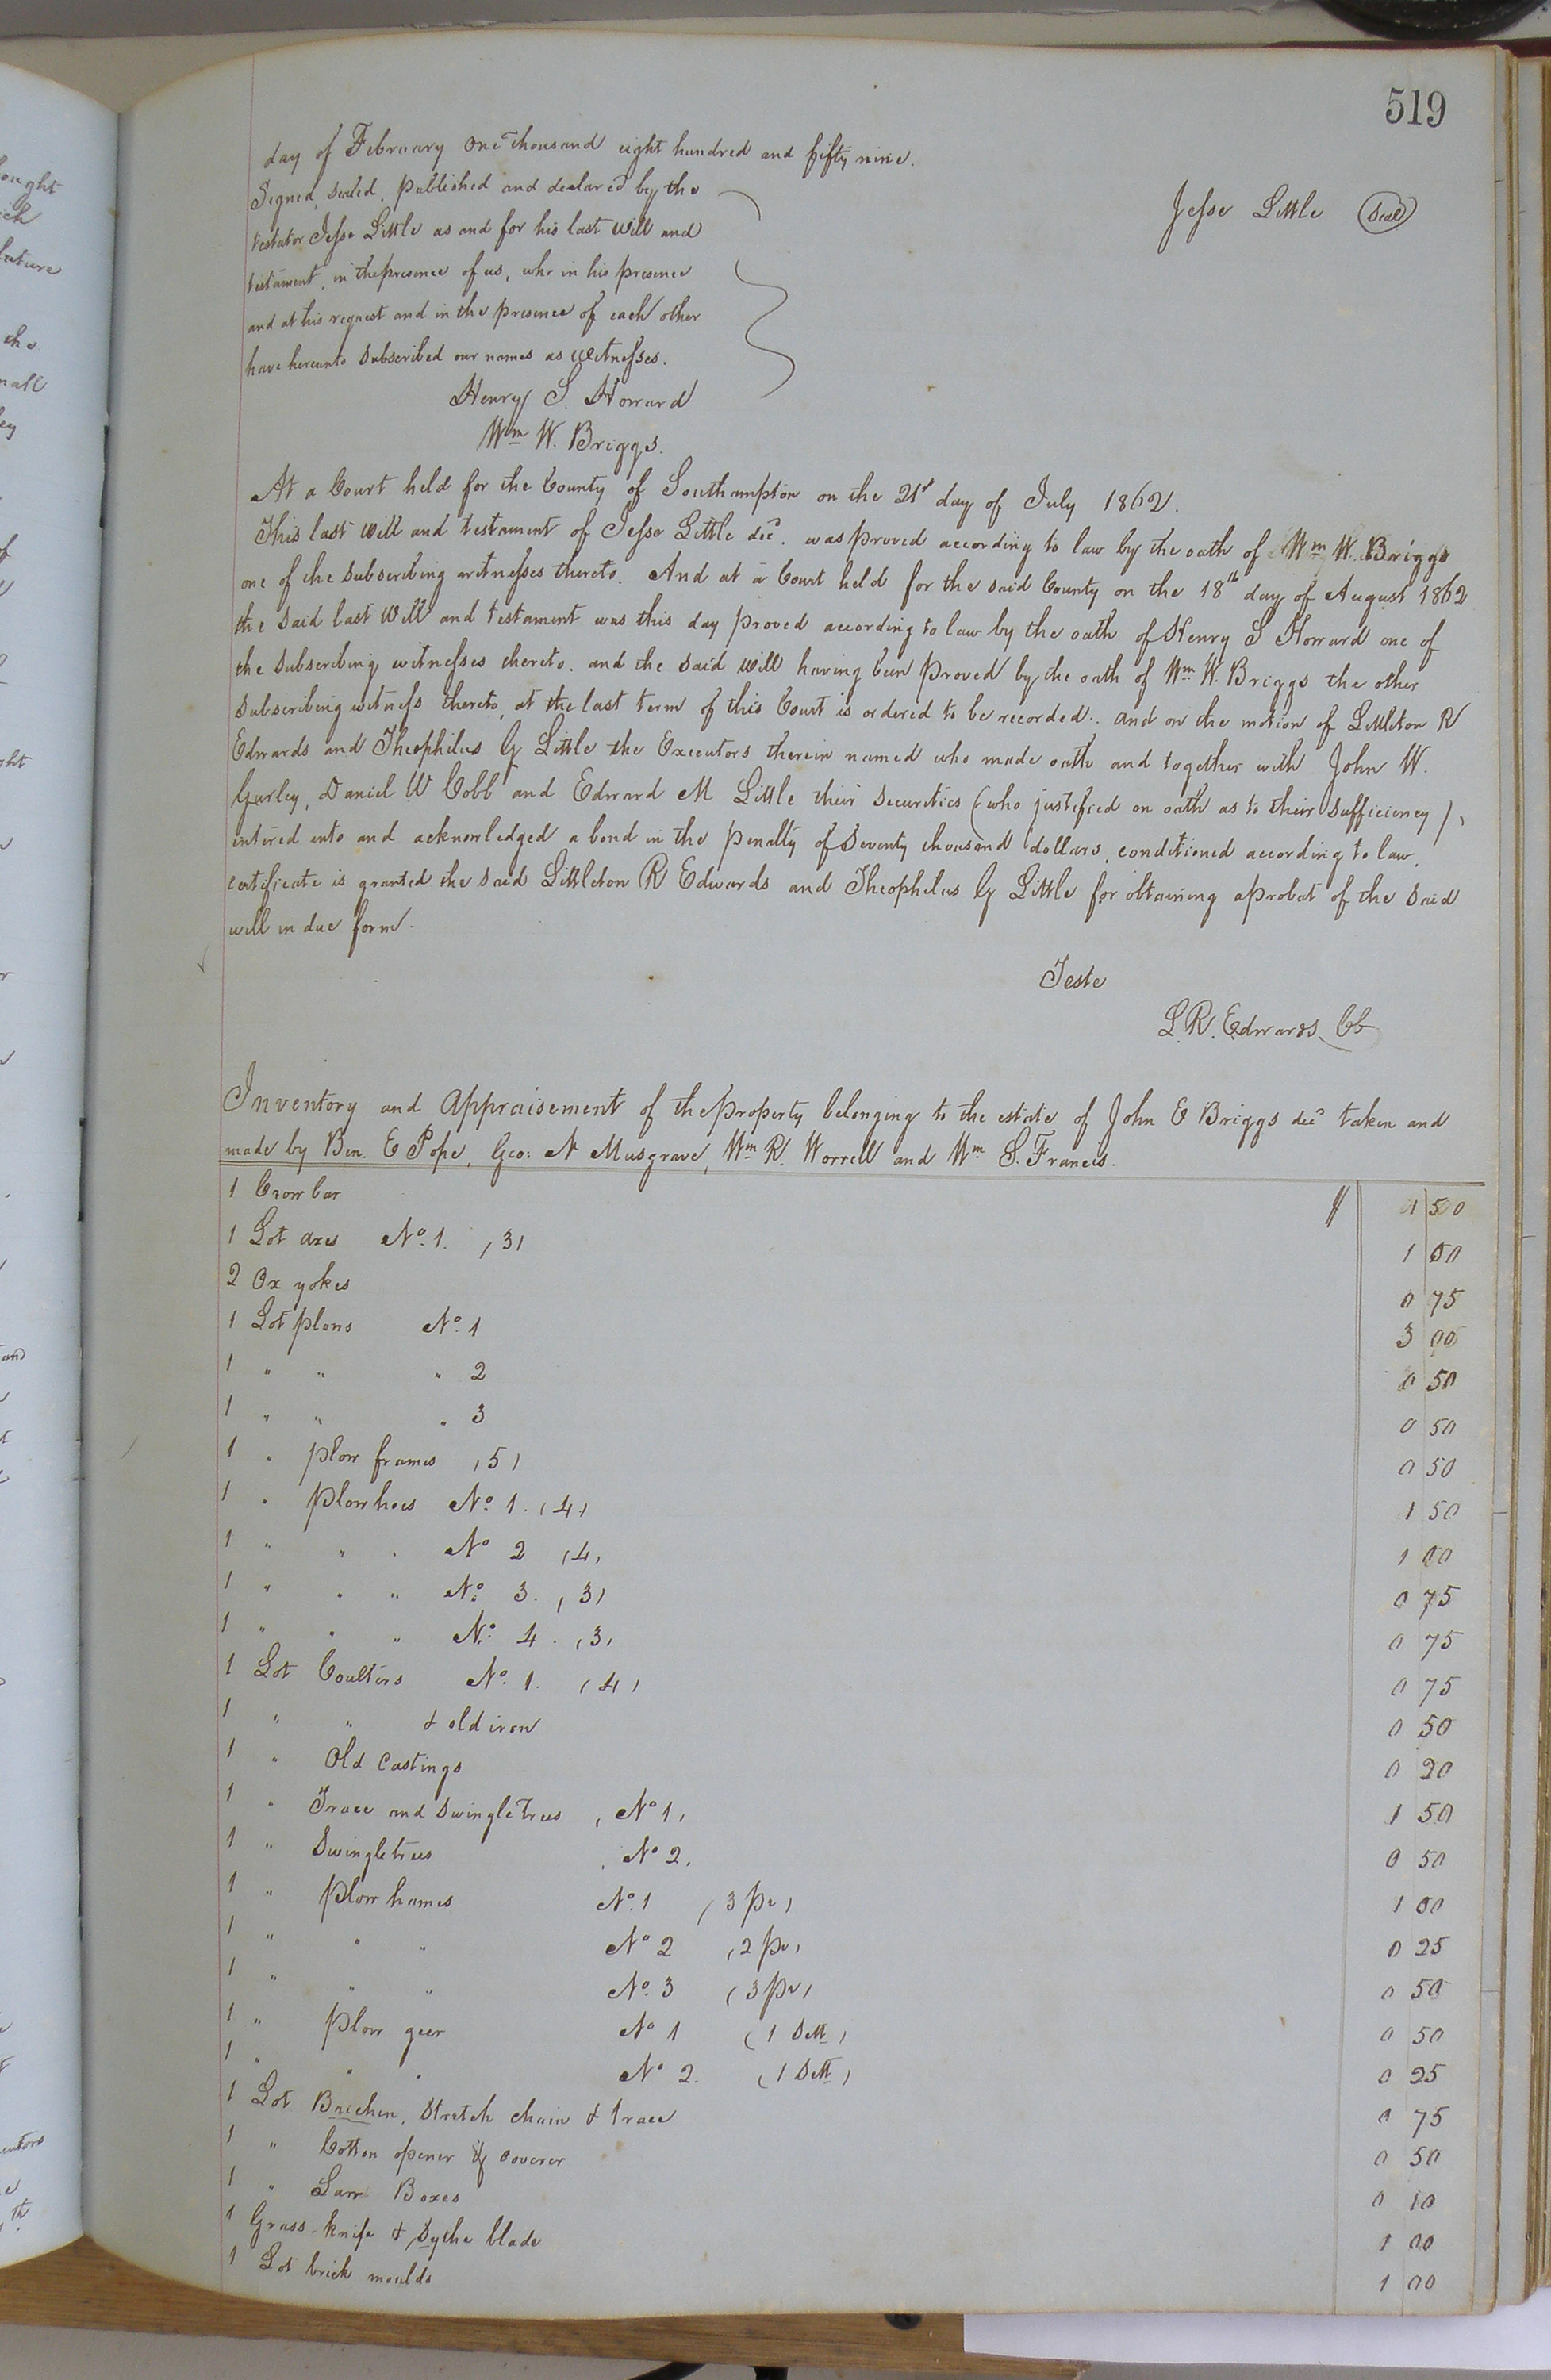 519
day of February One thousand eight hundred and fifty nine.
Jesse Little (Seal)
Signed, sealed, published and declared by the
testator Jesse Little as and for his last will and
testament, in the presence of us, who in his presence
and at his request and in the presence of each other
have hereunto subscribed our names as witnesses.
Henry S. Howard
Wm W. Briggs.
At a Court held for the County of Southampton on the 21st day of July 1862.
This last will and testament of Jesse Little decd. was proved according to law by the oath of Wm W. Briggs
one of the subscribing witnesses thereto. And at a Court held for the said County on the 18th day of August 1862
the said last Will and testament was this day proved according to law by the oath of Henry S Howard one of
the subscribing witnesses thereto. and the said will having been proved by the oath of Wm W. Briggs the other
subscribing witness thereto, at the last term of this Court is ordered to be recorded. and on the motion of Littleton R
Edwards and Theophilus G Little the Executors therein named who made oath and together with John W.
Gurley, Daniel W Cobb and Edward M Little their securities (who justified on oath as to their sufficiency),
entered into and acknowledged a bond in the penalty of seventy thousand dollars, conditioned according to law,
certificate is granted the said Littleton R Edwards and Theophilus G Little for obtaining a probat of the said
will in due form.
Teste
L. R. Edwards Ck
Inventory and Appraisement of the Property belonging to the estate of John E Briggs decd taken and
made by Ben. E Pope, Geo: N Musgrave, Wm R. Worrell and Wm S. Francis.
1 Crow bar $ 0 50
1 Lot axes No. 1. (3) 1 00
2 Ox yokes 0 75
1 Lot plows No. 1 3 00
1 " " " 2 0 50
1 " " " 3 0 50
1 " plow frames (5) 0 50
1 " Plow hoes No. 1. (4) 1 50
1 " " " No 2 (4) 1 00
1 " " " No. 3. (3) 0 75
1 " " " No. 4. (3) 0 75
1 Lot Coulters No. 1. (4) 0 75
1 " " & old iron 0 50
1 " Old Castings 0 20
1 " Trace and Swingle Trees, No 1, 1 50
1 " Swingletrees, No 2. 0 50
1 " Plow hames No. 1 (3 pr) 1 00
1 " " " No 2 (2 pr) 0 25
1 " " " No. 3 (3 pr) 0 50
1 " Plow geer No 1 (1 Sett) 0 50
1 " " " No 2. (1 Sett) 0 25
1 Lot Brichen, Stretch chain & trace 0 75
1 " Cotton opener & coverer 0 50
1 " Boxes 0 10
1 Grass-knife & Sythe blade 1 00
1 Lot brick moulds 1 00